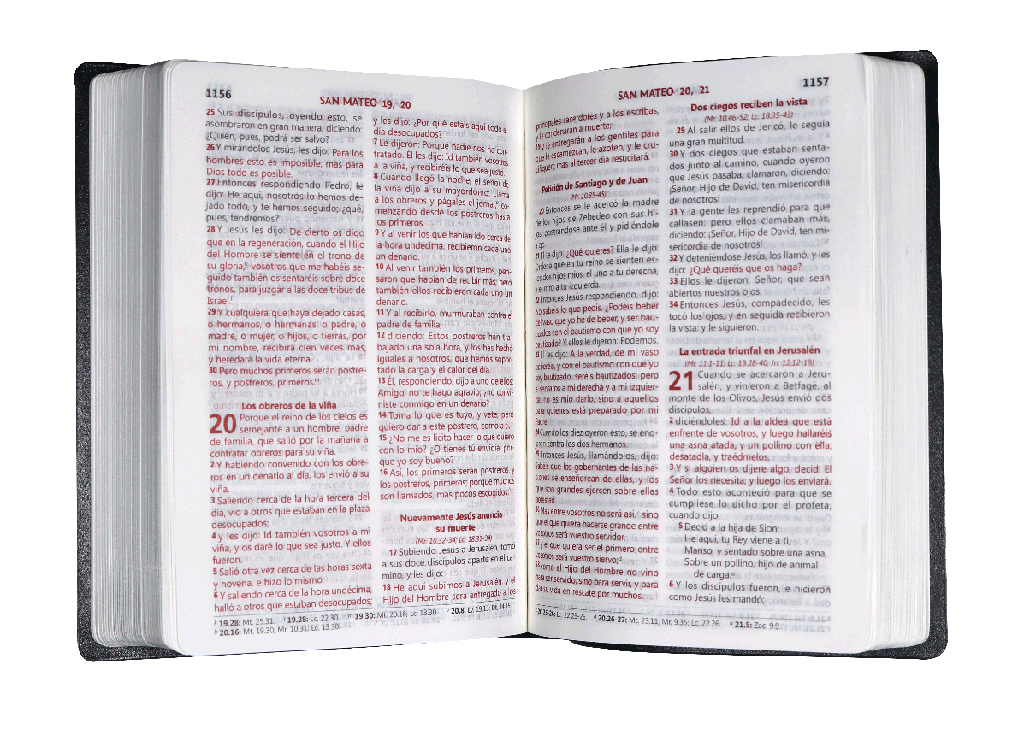 1156
SAN MATEO 19, 20
25 Sus discípulos, oyendo esto, se
asombraron en gran manera, diciendo:
¿Quién, pues, podrá ser salvo?
26 Y mirándolos Jesús, les dijo: Para los
hombres esto es imposible; mas para
Dios todo es posible.
27 Entonces respondiendo Pedro, le
dijo: He aquí, nosotros lo hemos de-
jado todo, y te hemos seguido; ¿qué,
pues, tendremos?
28 Y Jesús les dijo: De cierto os digo
que en la regeneración, cuando el Hijo
del Hombre se siente en el trono de
su gloria, vosotros que me habéis se-
guido también os sentaréis sobre doce
tronos, para juzgar a las doce tribus de
Israel.
29 Y cualquiera que haya dejado casas,
o hermanos, o hermanas, o padre, o
madre, o mujer, o hijos, o tierras, por
mi nombre, recibirá cien veces más,
y heredará la vida eterna.
30 Pero muchos primeros serán postre-
ros, y postreros, primeros.
Los obreros de la viña
20 Porque el reino de los cielos es
semejante a un hombre, padre
de familia, que salió por la mañana a
contratar obreros para su viña.
2 Y habiendo convenido con los obre-
ros en un denario al día, los envió a su
viña.
3 Saliendo cerca de la hora tercera del
día, vio a otros que estaban en la plaza
desocupados;
4 y les dijo: Id también vosotros a mi
viña, y os daré lo que sea justo. Y ellos
fueron.
5 Salió otra vez cerca de las horas sexta
y novena, e hizo lo mismo.
6 Y saliendo cerca de la hora undécima,
halló a otros que estaban desocupados;
y les dijo: ¿Por qué estáis aquí todo el
día desocupados?
7 Le dijeron: Porque nadie nos ha con-
tratado. Él les dijo: Id también vosotros
a la viña, y recibiréis lo que sea justo.
8 Cuando llegó la noche, el señor de
la viña dijo a su mayordomo: Llama
a los obreros y págales el jornal, co-
menzando desde los postreros hasta
los primeros.
9 Y al venir los que habían ido cerca de
la hora undécima, recibieron cada uno
un denario.
10 Al venir también los primeros, pen-
saron que habían de recibir más; pero
también ellos recibieron cada uno un
denario.
11 Y al recibirlo, murmuraban contra el
padre de familia,
12 diciendo: Estos postreros han tra-
bajado una sola hora, y los has hecho
iguales a nosotros, que hemos sopor-
tado la carga y el calor del día.
13 Él, respondiendo, dijo a uno de ellos:
Amigo, no te hago agravio; ¿no convi-
niste conmigo en un denario?
14 Toma lo que es tuyo, y vete; pero
quiero dar a este postrero, como a ti.
15 ¿No me es lícito hacer lo que quiero
con lo mío? ¿O tienes tú envidia, por-
que yo soy bueno?
16 Así, los primeros serán postreros, y
los postreros, primeros; porque muchos
son llamados, mas pocos escogidos.
Nuevamente Jesús anuncia
su muerte
(Mr. 10.32-34; Lc. 18.31-34)
17 Subiendo Jesús a Jerusalén, tomó
a sus doce discípulos aparte en el ca-
mino, y les dijo:
18 He aquí subimos a Jerusalén, y el
Hijo del Hombre será entregado a los
19.28: Mt. 25.31. 19.28: Lc. 22.30. 19.30: Mt. 20.16; Lc. 13.30. 20.8:
20.16: Mt. 19.30; Mr. 10.31; Lc. 13.30.
1157
SAN MATEO 20, 21
principales sacerdotes y a los escribas,
y le condenarán a muerte;
19 y le entregarán a los gentiles para
que le escarnezcan, le azoten, y le cru-
cifiquen; mas al tercer día resucitará.
Petición de Santiago y de Juan
(Mr. 10.35-45)
20 Entonces se le acercó la madre
de los hijos de Zebedeo con sus hi-
jos, postrándose ante él y pidiéndole
algo.
21 Él le dijo: ¿Qué quieres? Ella le dijo:
Ordena que en tu reino se sienten es-
tos dos hijos míos, el uno a tu derecha,
y el otro a tu izquierda.
22 Entonces Jesús respondiendo, dijo:
No sabéis lo que pedís. ¿Podéis beber
del vaso que yo he de beber, y ser bau-
tizados con el bautismo con que yo soy
bautizado? Y ellos le dijeron: Podemos.
23 Él les dijo: A la verdad, de mi vaso
beberéis, y con el bautismo con que yo
soy bautizado, seréis bautizados; pero
el sentaros a mi derecha y a mi izquier-
da, no es mío darlo, sino a aquellos
para quienes está preparado por mi
Padre.
24 Cuando los diez oyeron esto, se eno-
jaron contra los dos hermanos.
25 Entonces Jesús, llamándolos, dijo:
Sabéis que los gobernantes de las na-
ciones se enseñorean de ellas, y los
que son grandes ejercen sobre ellas
potestad.
26 Mas entre vosotros no será así, sino
que el que quiera hacerse grande entre
vosotros será vuestro servidor,
27 y el que quiera ser el primero entre
vosotros será vuestro siervo;
28 como el Hijo del Hombre no vino
para ser servido, sino para servir, y para
dar su vida en rescate por muchos.
Dos ciegos reciben la vista
(Mr. 10.46-52; Lc. 18.35-43)
29 Al salir ellos de Jericó, le seguía
una gran multitud.
30 Y dos ciegos que estaban senta-
dos junto al camino, cuando oyeron
que Jesús pasaba, clamaron, diciendo:
¡Señor, Hijo de David, ten misericordia
de nosotros!
31 Y la gente les reprendió para que
callasen; pero ellos clamaban más,
diciendo: ¡Señor, Hijo de David, ten mi-
sericordia de nosotros!
32 Y deteniéndose Jesús, los llamó, y les
dijo: ¿Qué queréis que os haga?
33 Ellos le dijeron: Señor, que sean
abiertos nuestros ojos.
34 Entonces Jesús, compadecido, les
tocó los ojos, y en seguida recibieron
la vista; y le siguieron.
La entrada triunfal en Jerusalén
(Mr. 11.1-11; Lc. 19.28-40; Jn. 12.12-19)
21 Cuando se acercaron a Jeru-
salén, y vinieron a Betfagé, al
monte de los Olivos, Jesús envió dos
discípulos,
2 diciéndoles: Id a la aldea que está
enfrente de vosotros, y luego hallaréis
una asna atada, y un pollino con ella;
desatadla, y traédmelos.
3 Y si alguien os dijere algo, decid: El
Señor los necesita; y luego los enviará.
4 Todo esto aconteció para que se
cumpliese lo dicho por el profeta,
cuando dijo:
5 Decid a la hija de Sion:
He aquí, tu Rey viene a ti,
Manso, y sentado sobre una asna,
Sobre un pollino, hijo de animal
de carga.
6 Y los discípulos fueron, e hicieron
como Jesús les mandó;
20.25-26: Lc. 22.25-26. 20.26-27: Mt. 23.11; Mr. 9.35; Lc. 22.26. 21.5: Zac. 9.9.